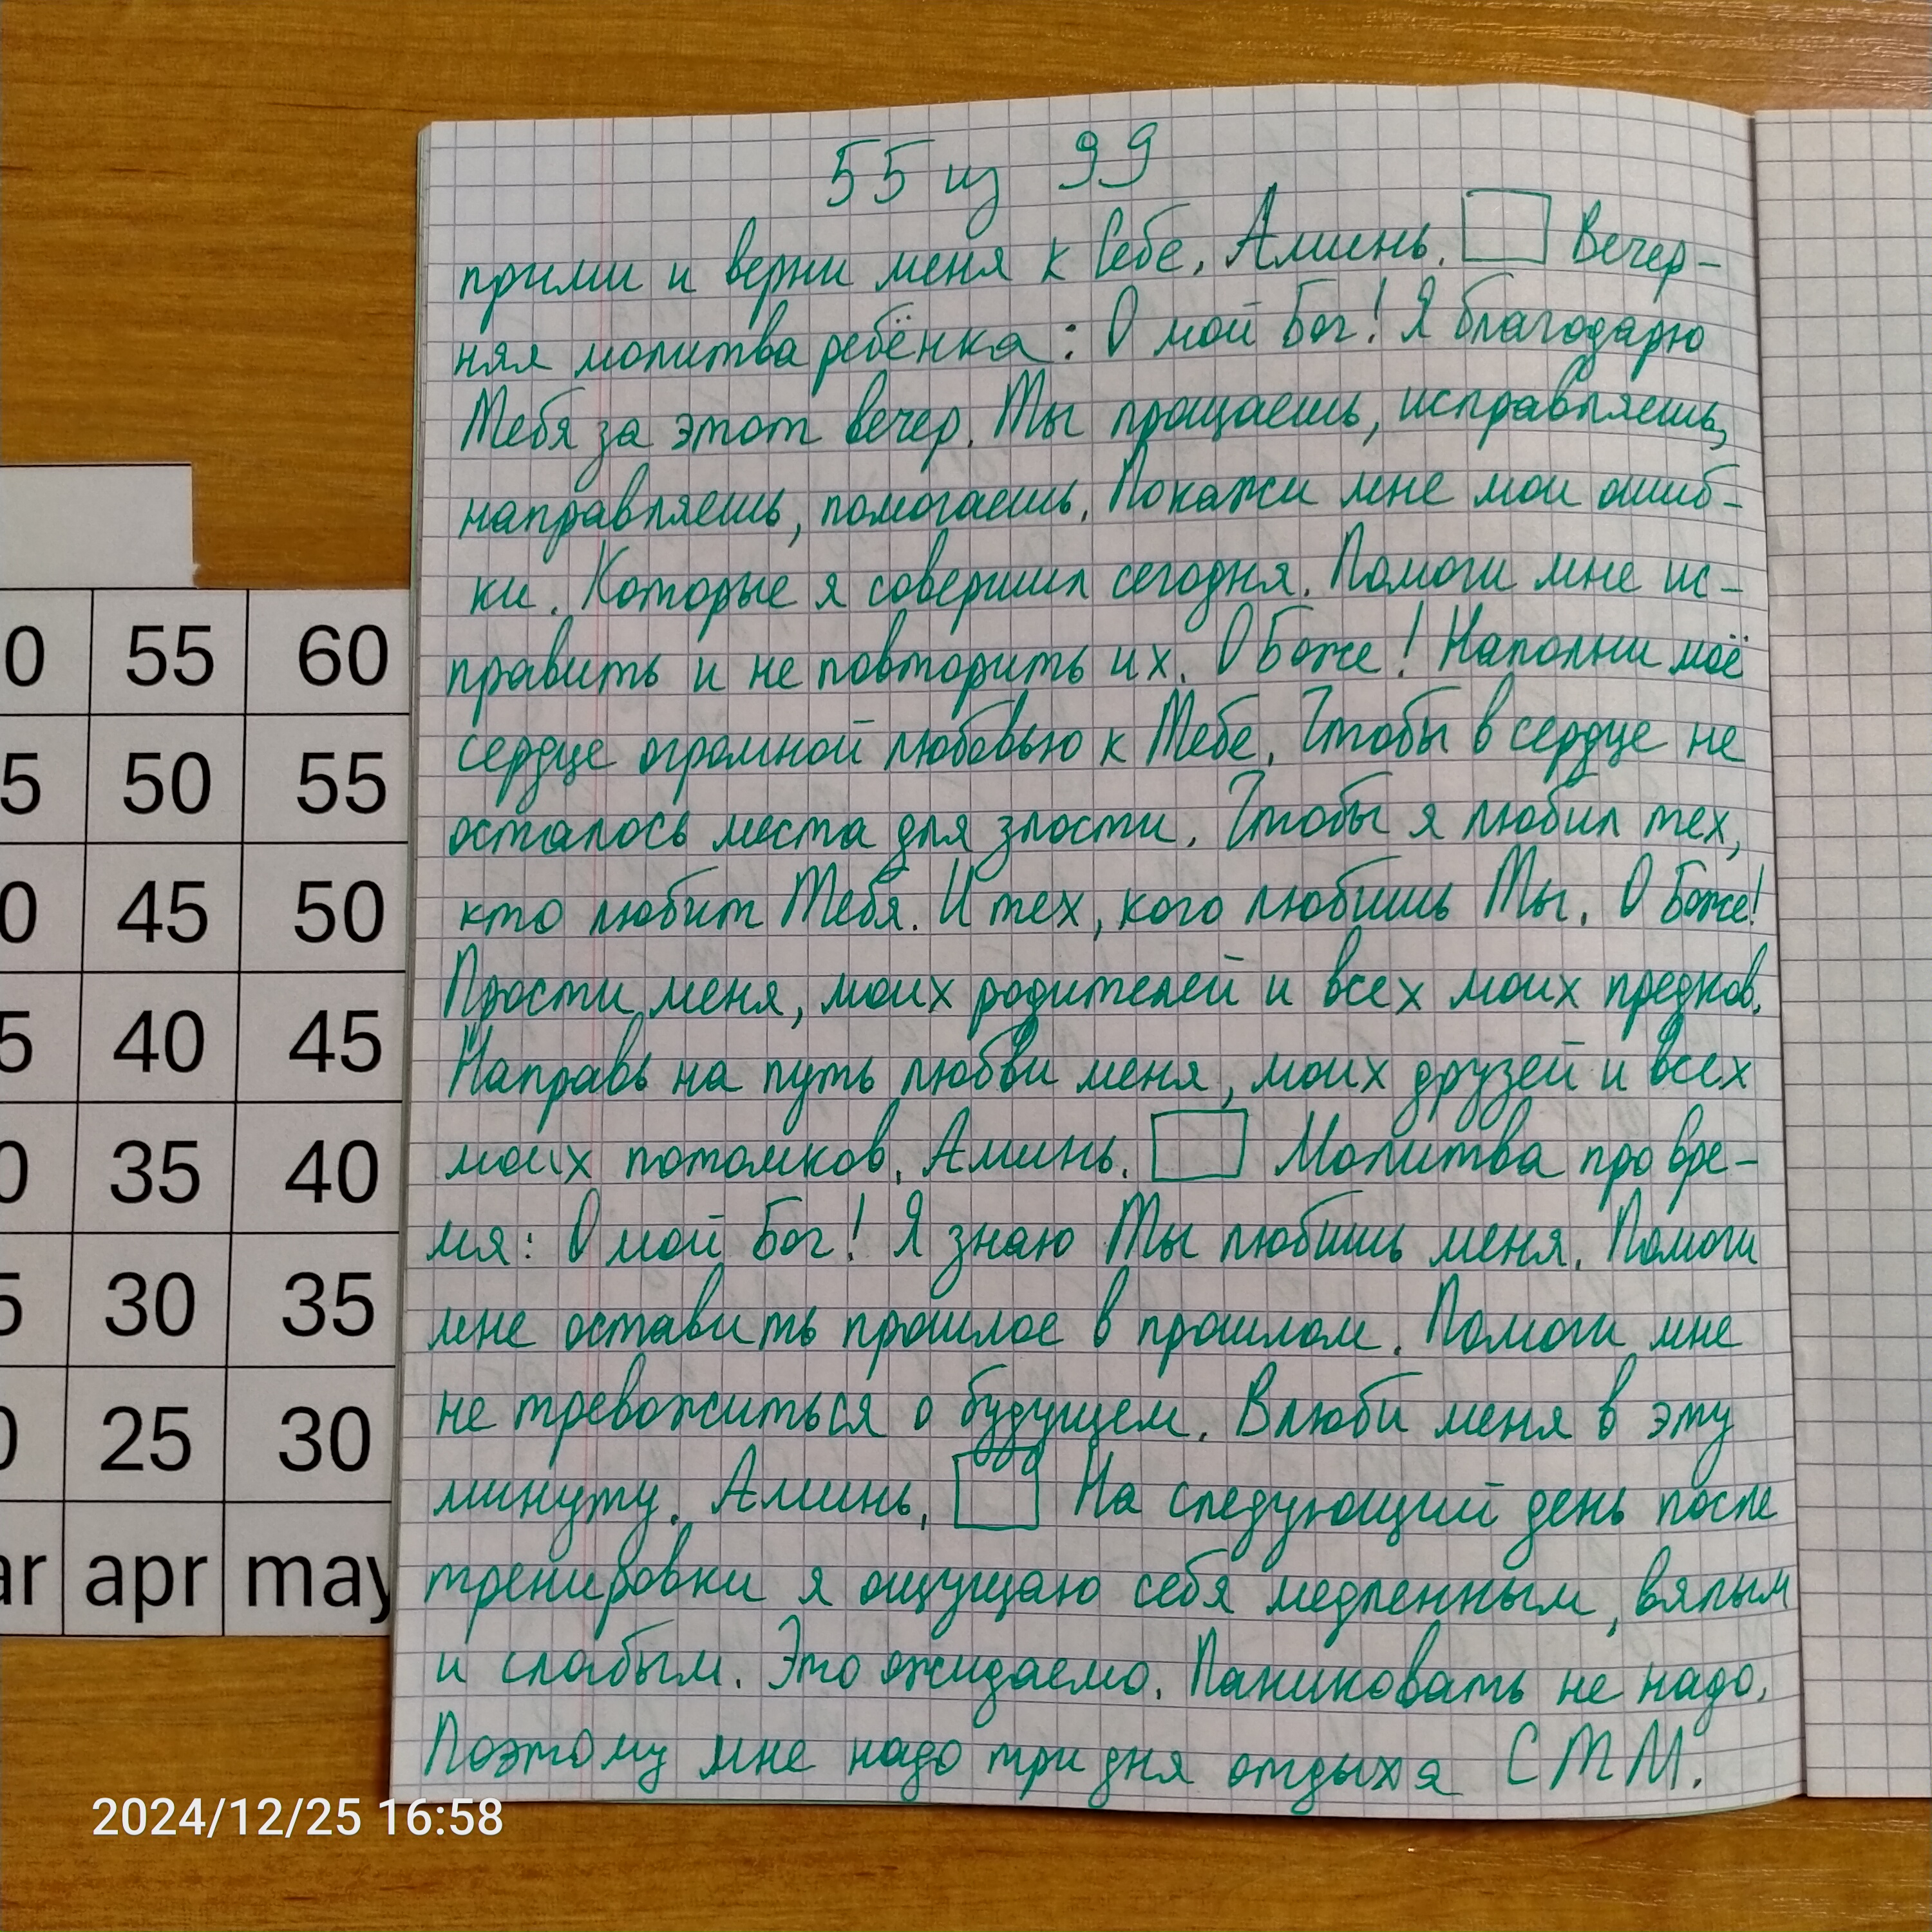 55 из 99
прими и верни меня к Себе. Аминь. Вечер-
няя молитва ребёнка: О мой Бог! Я благодарю
Тебя за этот вечер. Ты прощаешь, исправляешь,
направляешь, помогаешь. Покажи мне мои ошиб-
ки. Которые я совершил сегодня. Помоги мне ис-
править и не повторить их. О Боже! Наполни моё
сердце огромной любовью к Тебе. Чтобы в сердце не
осталось места для злости. Чтобы я любил тех,
кто любит Тебя. И тех, кого любишь Ты. О Боже!
Прости меня, моих родителей и всех моих предков.
Направь на путь любви меня, моих друзей и всех
моих потомков. Аминь. Молитва про вре-
мя: О мой Бог! Я знаю Ты любишь меня. Помоги
мне оставить прошлое в прошлом. Помоги мне
не тревожиться о будущем. Влюби меня в эту
минуту. Аминь. На следующий день после
тренировки я ощущаю себя медленным, вялым
и слабым. Это ожидаемо. Паниковать не надо.
Поэтому мне надо три дня отдыха СТМ.
0 55 60
5 50 55
0 45 50
5 40 45
0 35 40
5 30 35
0 25 30
ar apr may
2024/12/25 16:58